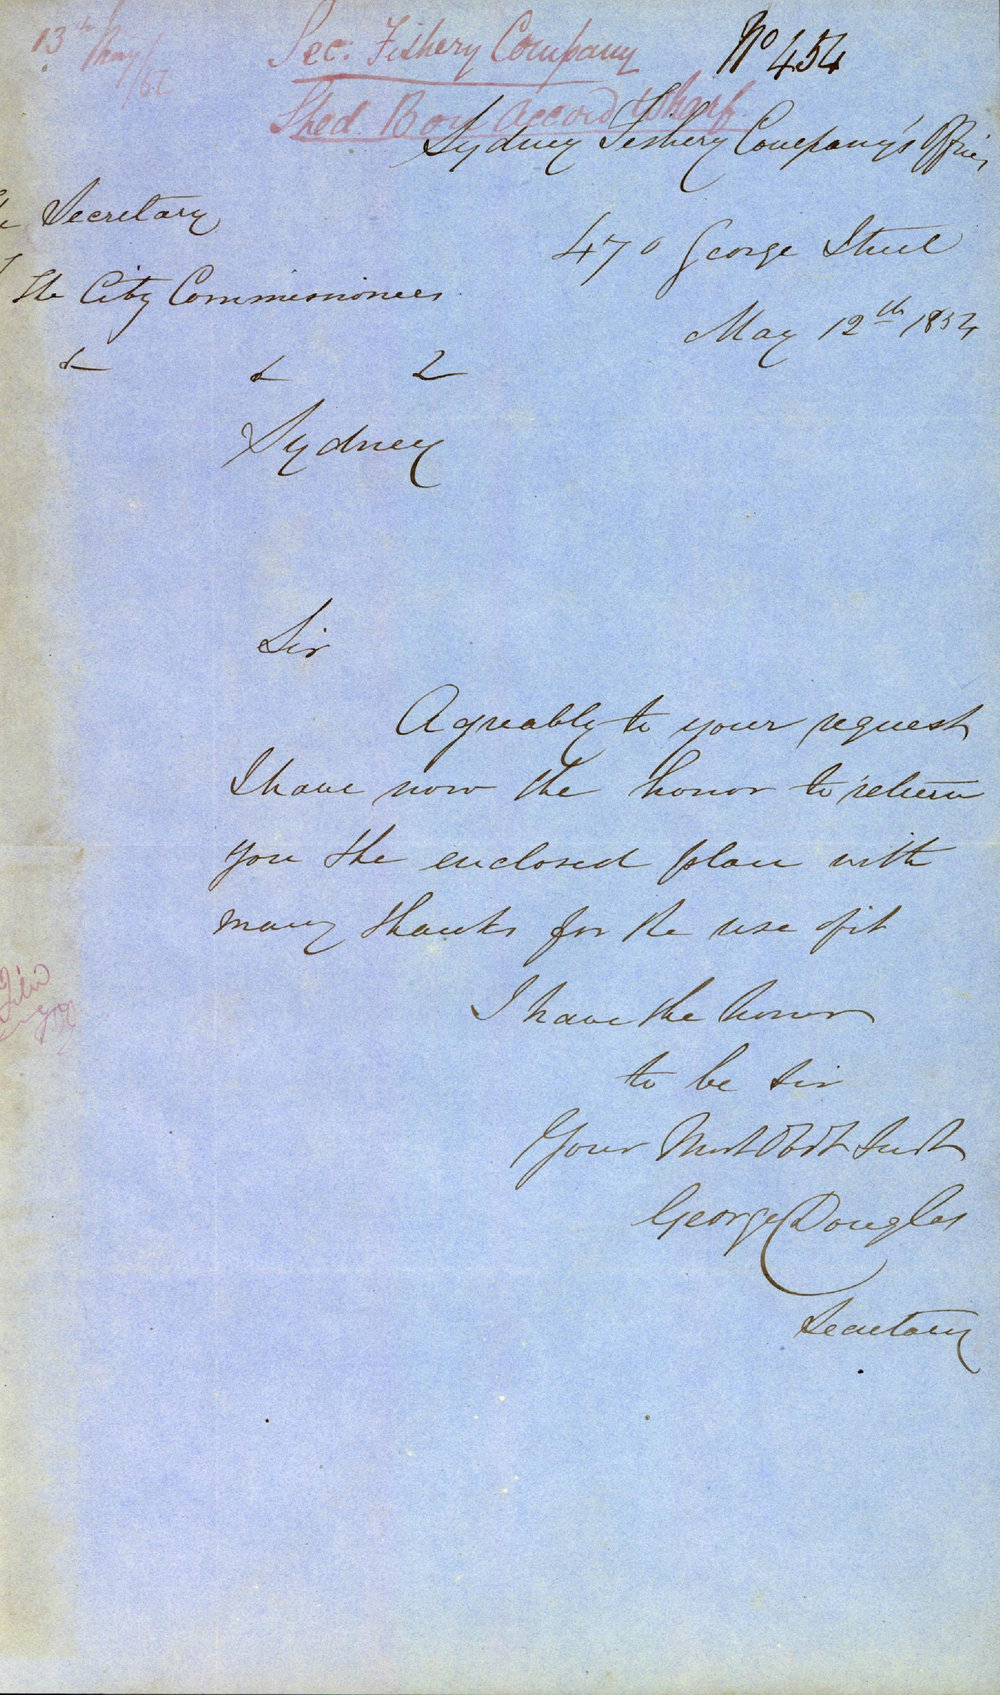 13th May
Sec: Fishery Company
No 454
Shed. Accord Wharf.
Sydney Fishery Company's Office
Secretary
470 George Street
The City Commissioners
May 12th 1854
& & &
Sydney
Sir
Agreably to your request
I have now the honor to return
you the enclosed plan with
many thanks for the use of it
I have the honor
to be Sir
Your Most Obdt Servt
George Douglas
Secretary